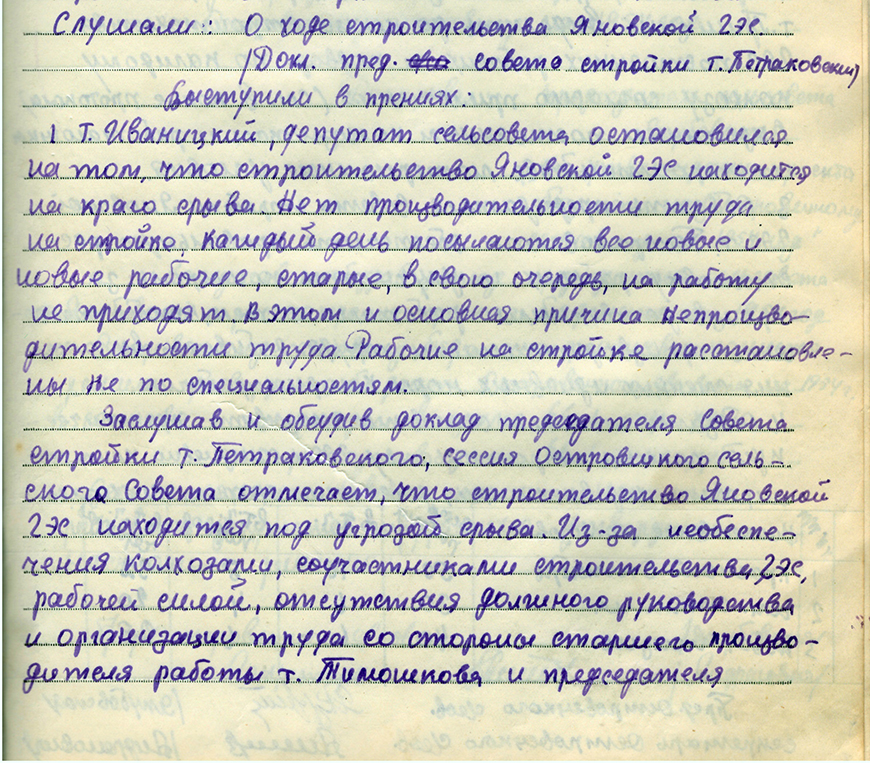 Слушали: О ходе строительства Яновской ГЭС.
/Докл. пред. совета стройки т. Петраковский/
Выступили в прениях:
1 т. Иваницкий, депутат сельсовета остановился
на том, что строительство Яновской ГЭС находится
на краю срыва. Нет производительности труда
на стройке, каждый день посылаются все новые и
новые рабочие, старые, в свою очередь, на работу
не приходят. В этом и основная причина непроизво-
дительности труда Рабочие на стройке расстановле-
ны не по специальностям.
Заслушав и обсудив доклад председателя Совета
стройки т. Петраковского, сессия Островщкого сель-
ского Совета отмечает, что строительство Яновской
ГЭС находится под угрозой срыва. Из-за необеспе-
чения колхозами, соучастниками строительства ГЭС,
рабочей силой, отсутствия должного руководства
и организации труда со стороны старшего произво-
дителя работы т. Тимошкова и председателя